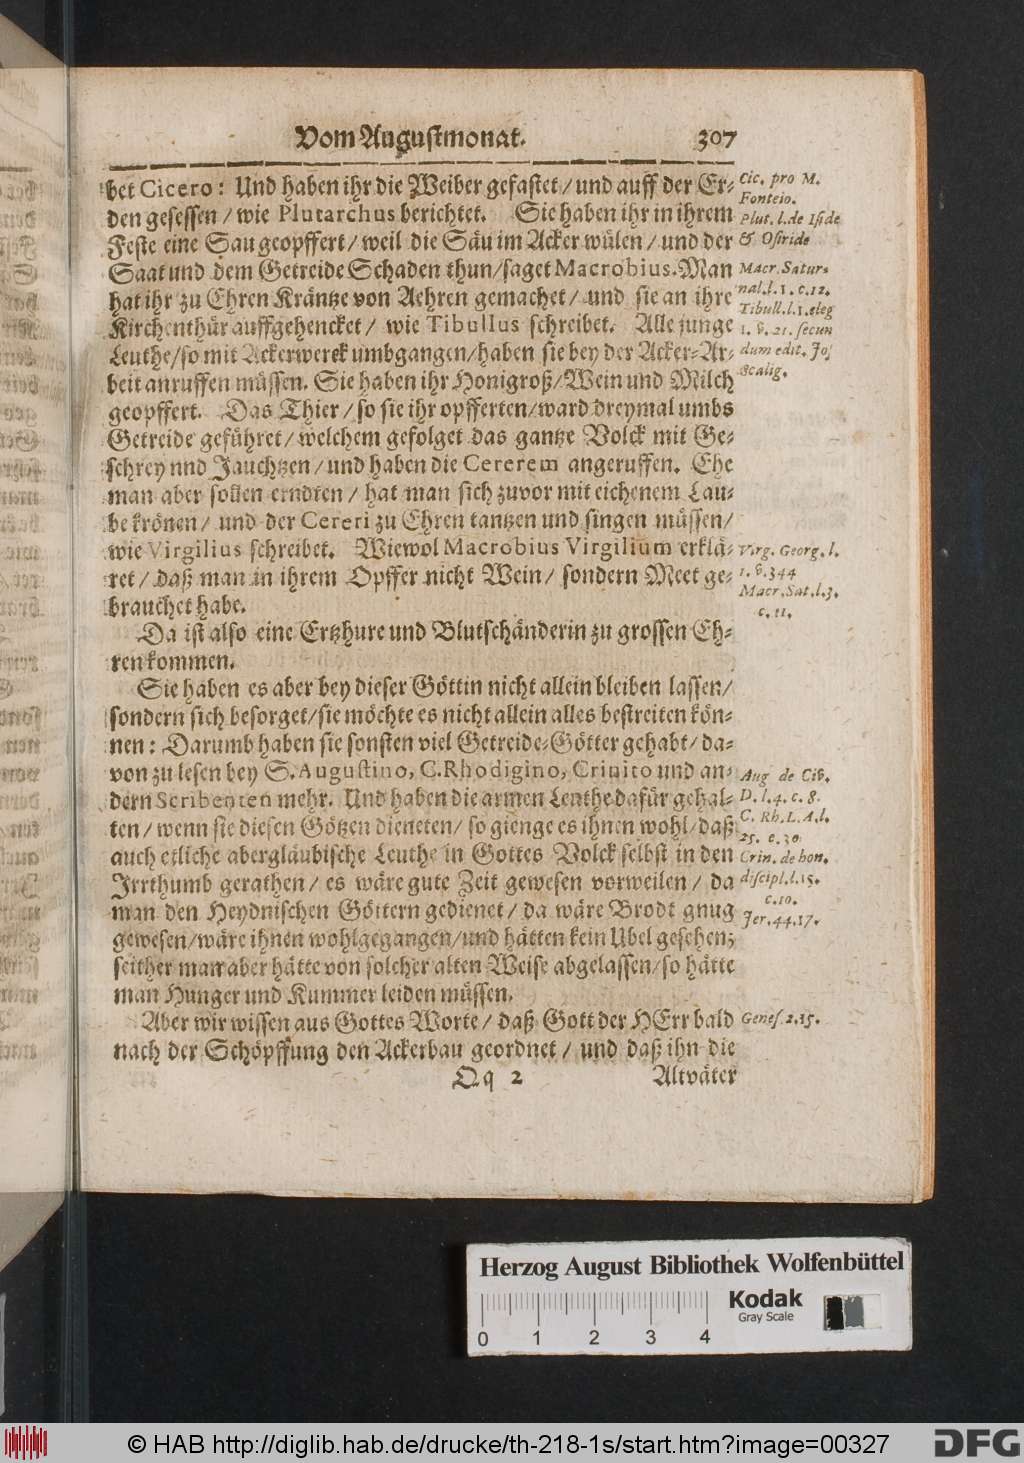 Vom Augustmonat. 307
bet Cicero: Und haben ihr die Weiber gefastet / und auff der Er-
den gesessen / wie Plutarchus berichtet. Sie haben ihr in ihrem
Feste eine Sau geopffert / weil die Säu im Acker wülen / und der
Saat und dem Getreide Schaden thun / saget Macrobius. Man
hat ihr zu Ehren Kräntze von Aehren gemachet / und sie an ihre
Kirchenthür auffgehencket / wie Tibullus schreibet. Alle junge
Leuthe / so mit Ackerwerck umbgangen / haben sie bey der Acker-Ar-
beit anruffen müssen. Sie haben ihr Honigroß / Wein und Milch
geopffert. Das Thier / so sie ihr opfferten / ward dreymal umbs
Getreide geführet / welchem gefolget das gantze Volck mit Ge-
schrey nnd Jauchtzen / und haben die Cererem angeruffen. Ehe
man aber sollen erndten / hat man sich zuvor mit eichenem Lau-
be krönen / und der Cereri zu Ehren tantzen und singen müssen /
wie Virgilius schreibet. Wiewol Macrobius Virgilium erklä-
ret / daß man in ihrem Opffer nicht Wein / sondern Meet ge-
brauchet habe.
Da ist also eine Ertzhure und Blutschänderin zu grossen Eh-
ren kommen.
Sie haben es aber bey dieser Göttin nicht allein bleiben lassen /
sondern sich besorget / sie möchte es nicht allein alles bestreiten kön-
nen: Darumb haben sie sonsten viel Getreide-Götter gehabt / da-
von zu lesen bey S. Augustino, C. Rhodigino, Crinito und an-
dern Scribenten mehr. Und haben die armen Leuthe dafür gehal-
ten / wenn sie diesen Götzen dieneten / so gienge es ihnen wohl / daß
auch etliche abergläubische Leuthe in Gottes Volck selbst in den
Irrthumb gerathen / es wäre gute Zeit gewesen vorweilen / da
man den Heydnischen Göttern gedienet / da wäre Brodt gnug
gewesen / wäre ihnen wohlgegangen / und hätten kein Ubel gesehen;
seither man aber hätte von solcher alten Weise abgelassen / so hätte
man Hunger und Kummer leiden müssen.
Aber wir wissen aus Gottes Worte / daß Gott der HErr bald
nach der Schöpffung den Ackerbau geordnet / und daß ihn die
Qq 2 Altväter
Cic. pro M.
Fonteio.
Plut. l. de Iside
& Osiride
Macr. Satur-
nal. l. 1. c. 12.
Tibull. l. 1. eleg
1. v. 21. secun
dum edit. Jos
Scalig.
Virg. Georg. l.
1. v. 344
Macr. Sat. l. 3.
c. 11.
Aug de Civ.
D. l. 4. c. 8.
C. Rh. L. A. l.
25. c. 30
Crin. de hon.
discipl. l. 15.
c. 10.
Jer. 44. 17.
Genes. 2. 15.
Herzog August Bibliothek Wolfenbüttel
0 1 2 3 4
Kodak
Gray Scale
© HAB http://diglib.hab.de/drucke/th-218-1s/start.htm?image=00327
DFG